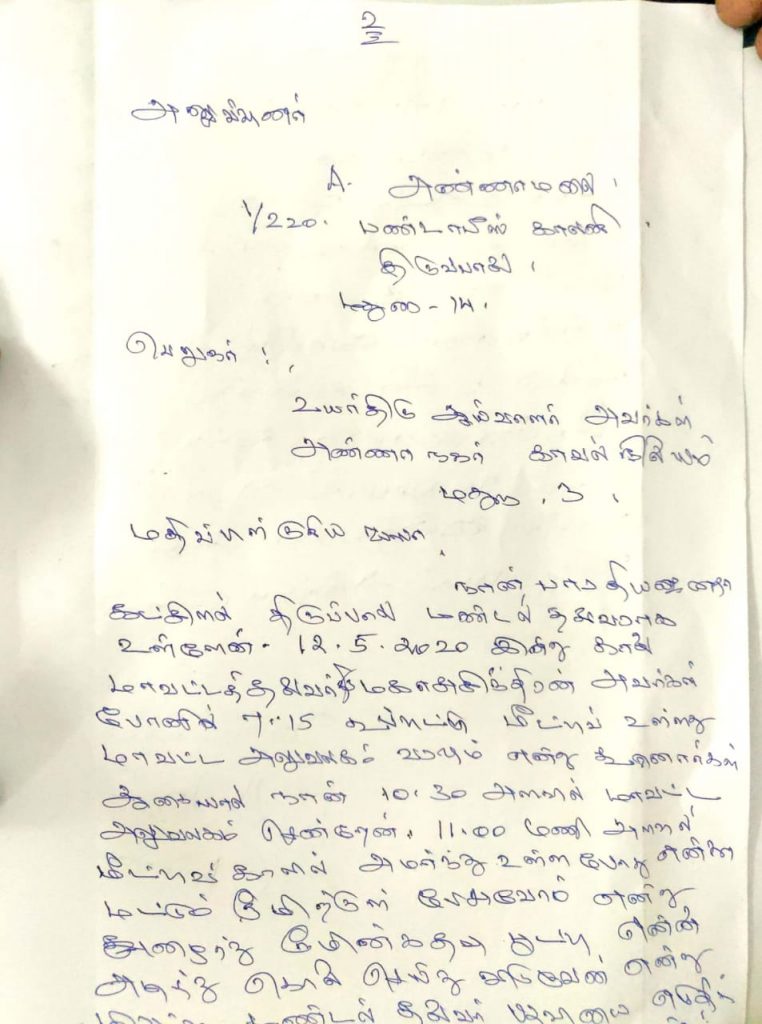 2/3
அனுப்புனர்
A. அண்ணாமலை
1/220. காலனி
திருப்பாலை
மதுரை - 14.
பெறுநர் :
உயர்திரு ஆய்வாளர் அவர்கள்
அண்ணா நகர் காவல் நிலையம்
மதுரை . 3
மதிப்பிற்குரிய ஐயா
நான் பாரதிய ஜனதா
கட்சியில் திருப்பாலை மண்டல் தலைவராக
உள்ளேன். 12.5.2020 இன்று காலை
மாவட்டத்தலைவர் அவர்கள்
போனில் 7:15 மீட்டிங் உள்ளது
மாவட்ட அலுவலகம் வரவும் என்று கூறினார்கள்
ஆகையால் நான் 10:30 அளவில் மாவட்ட
அலுவலகம் சென்றேன். 11.00 மணி அளவில்
மீட்டிங் காலில் அமர்ந்து உள்ள போது என்னை
மட்டும் ரூமிற்குள் பேசுவோம் என்று
அழைத்து ரூமின் கதவை பூட்டி என்னை
அடித்து கொலை செய்து விடுவேன் என்று
மண்டல் தலைவர் பதவியை